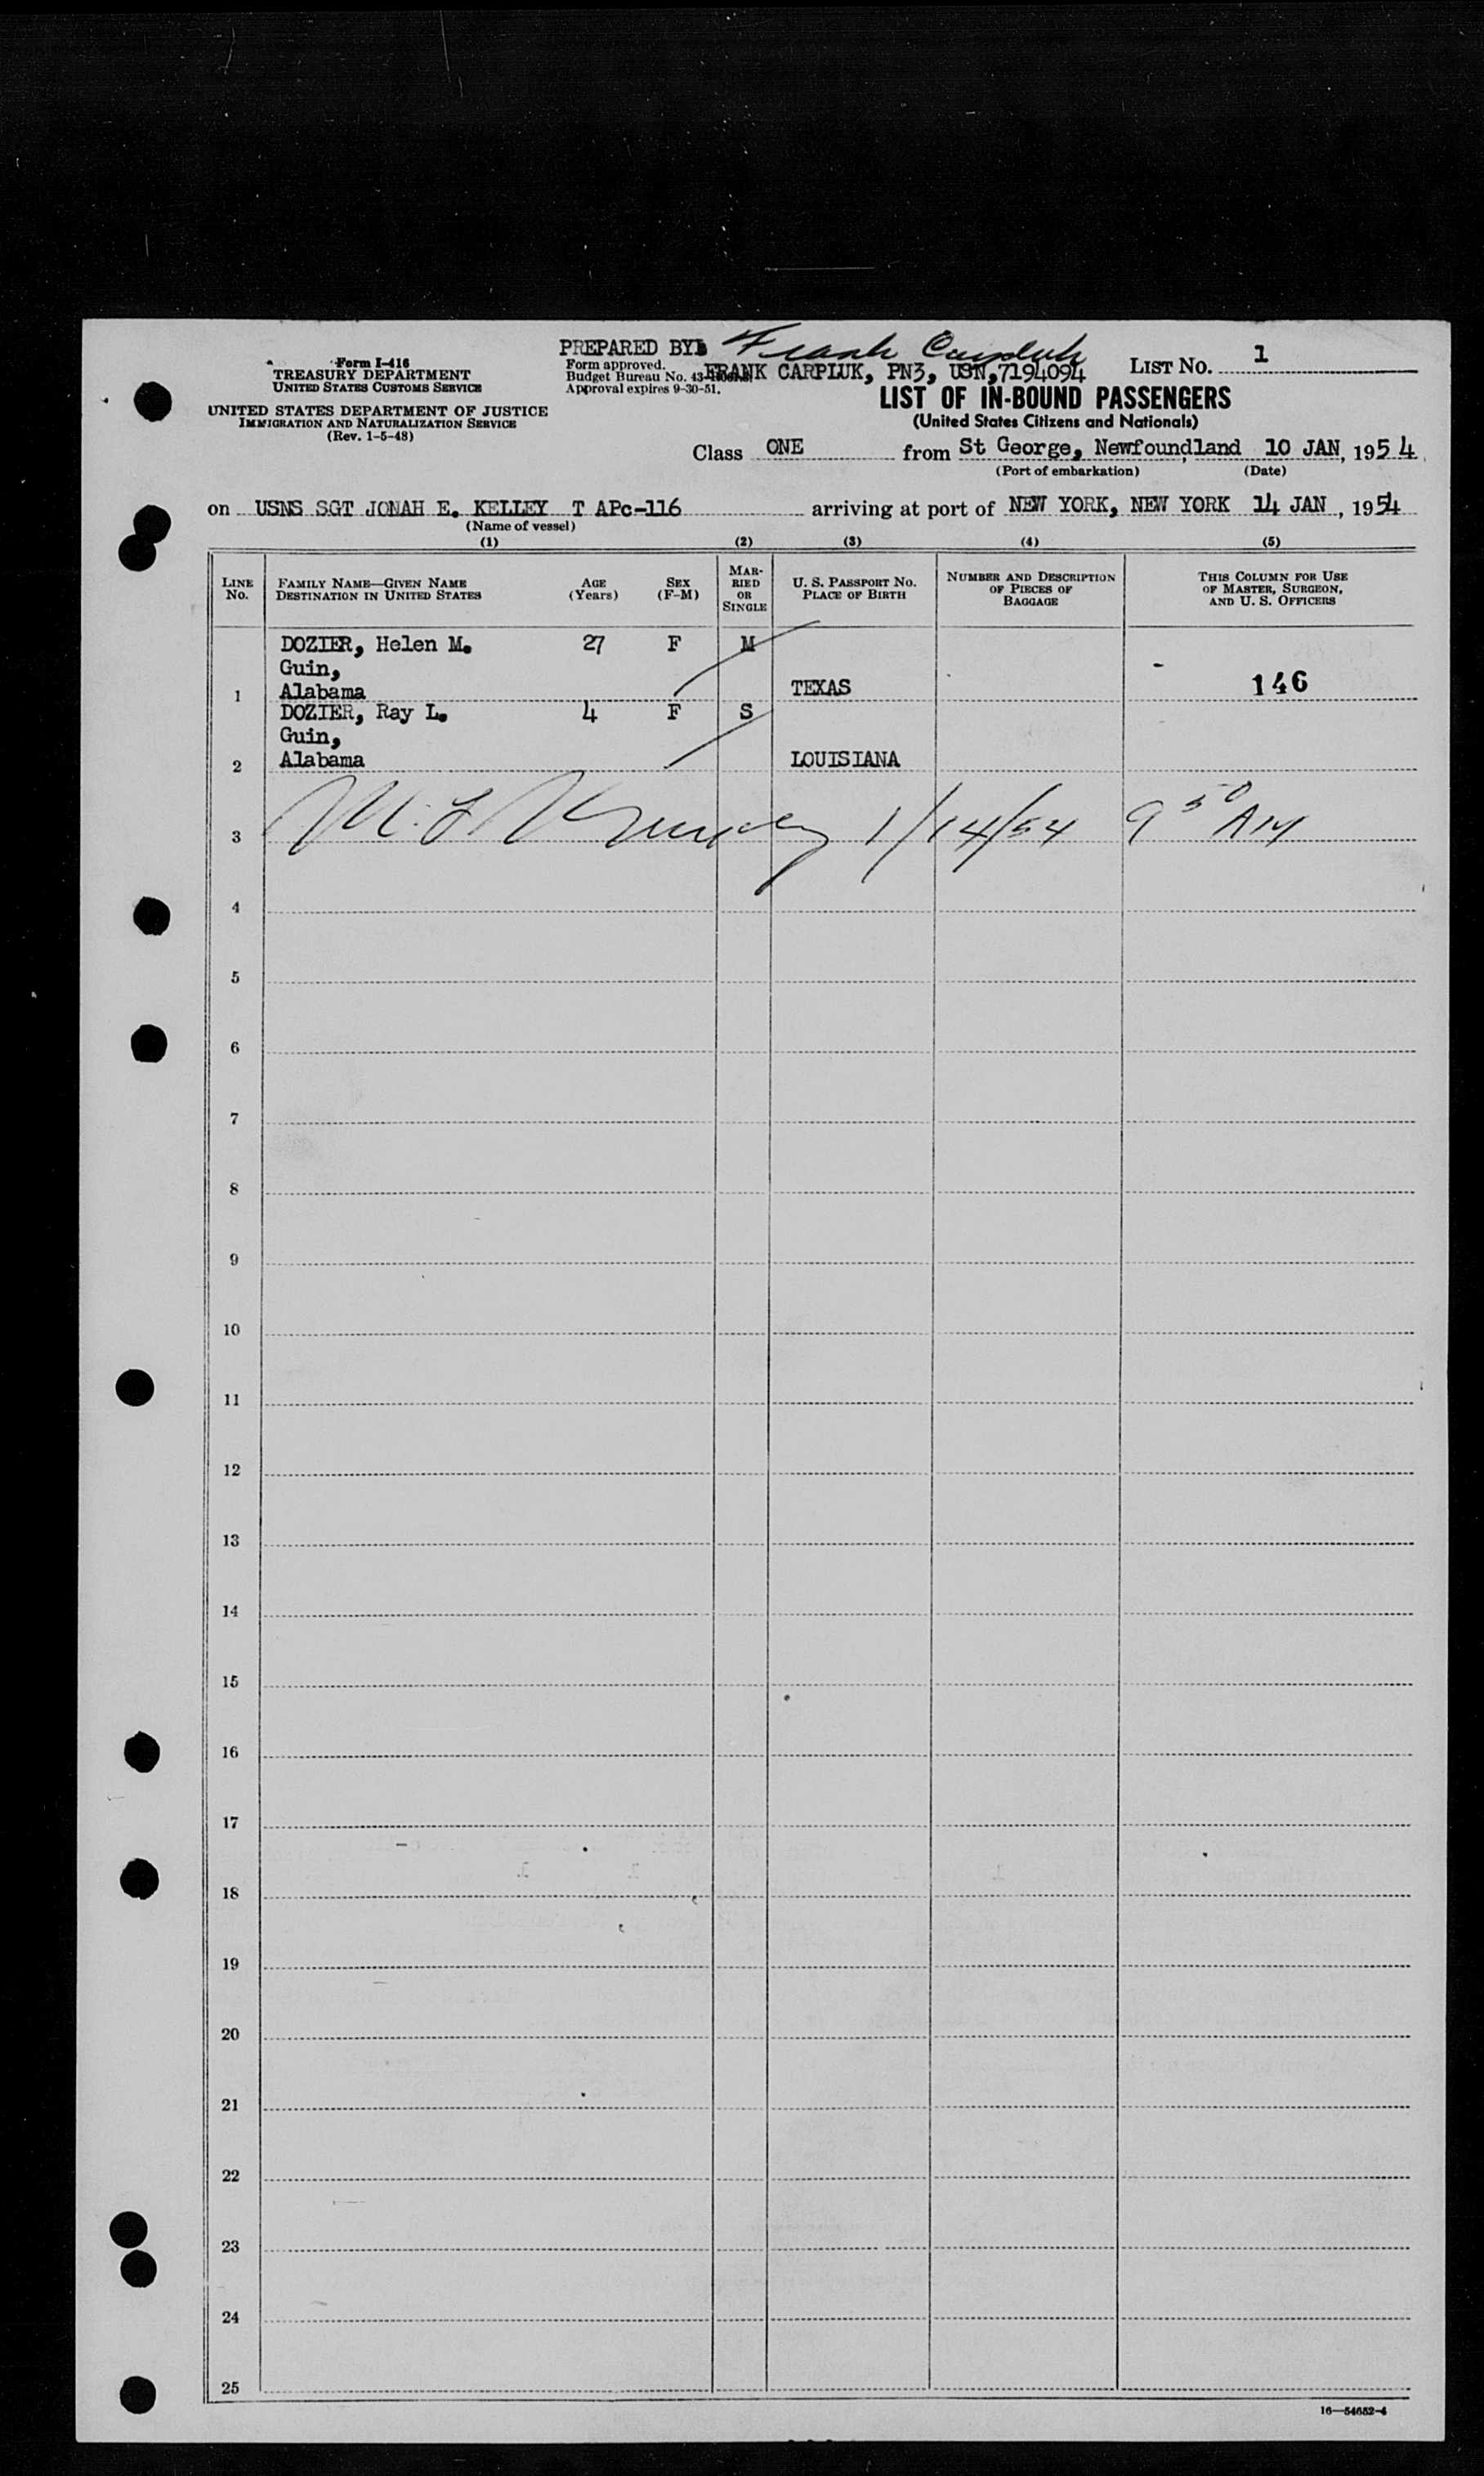 PREPARED BY: Frank Carpluk
Form I-416
TREASURY DEPARTMENT
UNITED STATES CUSTOMS SERVICE
UNITED STATES DEPARTMENT OF JUSTICE
IMMIGRATION AND NATURALIZATION SERVICE
(Rev. 1-5-48)
Form approved.
Budget Bureau No. 43-
Approval expires 9-30-51.
FRANK CARPLUK, PN3, USN,7194094
LIST NO. 1
LIST OF IN-BOUND PASSENGERS
(United States Citizens and Nationals)
Class ONE from St George, Newfoundland 10 JAN, 1954
(Port of embarkation) (Date)
on USNS SGT JONAH E. KELLEY T APc-116 arriving at port of NEW YORK, NEW YORK 14 JAN, 1954
(Name of vessel)
(1) (2) (3) (4) (5)
LINE NO.
FAMILY NAME—GIVEN NAME
DESTINATION IN UNITED STATES
AGE (Years)
SEX (F-M)
MARRIED OR SINGLE
U. S. PASSPORT NO.
PLACE OF BIRTH
NUMBER AND DESCRIPTION OF PIECES OF BAGGAGE
THIS COLUMN FOR USE OF MASTER, SURGEON, AND U. S. OFFICERS
DOZIER, Helen M. 27 F M
Guin,
1 Alabama TEXAS 146
DOZIER, Ray L. 4 F S
Guin,
2 Alabama LOUISIANA
3 1/14/54 9 50 AM
4
5
6
7
8
9
10
11
12
13
14
15
16
17
18
19
20
21
22
23
24
25
16—54652-4